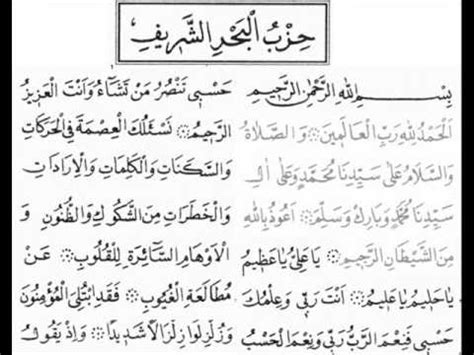 حِزْبُ الْبَحْرِ الشَّرِيفِ
بِسْمِ اللهِ الرَّحْمٰنِ الرَّحِيمِ
اَلْحَمْدُ لِلّٰهِ رَبِّ الْعَالَمِينَ ۞ وَ الصَّلَاةُ
وَالسَّلَامُ عَلَى سَيِّدِنَا مُحَمَّدٍ وَ عَلَى اٰلِ
سَيِّدِنَا مُحَمَّدٍ وَبَارِكْ وَسَلِّمْ ۞ اَعُوذُ بِاللهِ
مِنَ الشَّيْطَانِ الرَّجِيمِ ۞ يَا عَلِيُّ يَا عَظِيمُ
يَا حَلِيمُ يَا عَلِيمُ ۞ اَنْتَ رَبِّي وَ عِلْمُكَ
حَسْبِي فَنِعْمَ الرَّبُّ رَبِّي وَ نِعْمَ الْحَسْبُ
حَسْبِي تَنْصُرُ مَنْ تَشَاءُ وَاَنْتَ الْعَزِيزُ
الرَّحِيمُ ۞ نَسْئَلُكَ الْعِصْمَةَ فِي الْحَرَكَاتِ
وَالسَّكَنَاتِ وَالْكَلِمَاتِ وَالْاِرَادَاتِ
وَالْخَطَرَاتِ مِنَ الشُّكُوكِ وَالظُّنُونِ وَ
الْاَوْهَامِ السَّائِرَةِ لِلْقُلُوبِ ۞ عَنْ
مُطَالَعَةِ الْغُيُوبِ ۞ فَقَدِ ابْتُلِيَ الْمُؤْمِنُونَ
وَزُلْزِلُوا زِلْزَالًا شَدِيدًا ۞ وَاِذْ يَقُولُ